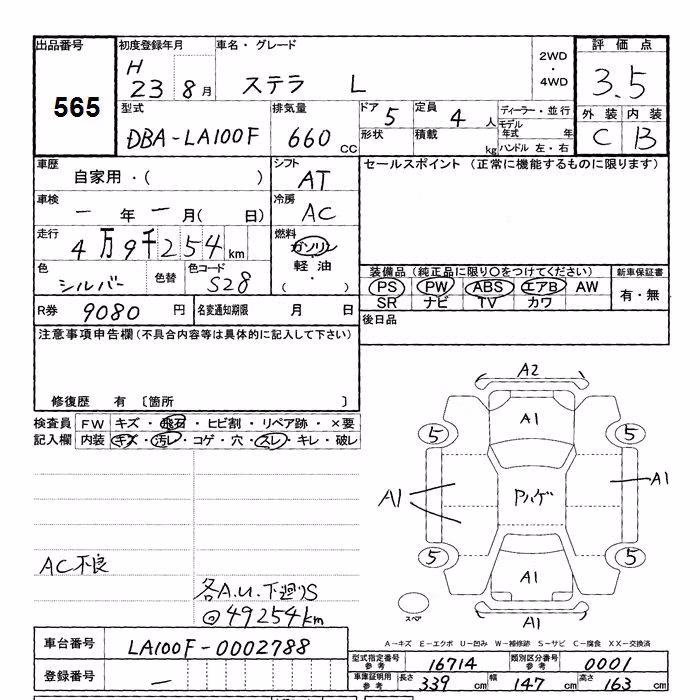 出品番号 初度登録年月 車名・グレード 2WD・4WD 評価点
565 H 23 8月 ステラ L 3.5
型式 排気量 ドア 5 定員 4人 ディーラー・並行 外装 内装
DBA-LA100F 660cc 形状 積載 kg モデル年式 年 C B
ハンドル 左・右
車歴 シフト セールスポイント(正常に機能するものに限ります)
自家用・( ) AT
車検 冷房
一年一月( 日) AC
走行 4万9千254km 燃料
ガソリン
軽・油
( )
色 シルバー 色替 色コード S28
装備品(純正品に限り○をつけてください) 新車保証書
PS PW ABS エアB AW 有・無
SR ナビ TV カワ
R券 9080円 名変通知期限 月 日 後日品
注意事項申告欄(不具合内容等は具体的に記入して下さい)
修復歴 有 〔箇所 〕
検査員 FW キズ・飛石・ヒビ割・リペア跡・×要
記入欄 内装 キズ・汚レ・コゲ・穴・スレ・キレ・破レ
A2
A1
5 5
A1 Pハゲ A1
5 5
A1
スペア
A1
AC不良
各A.U.下廻りS
◎49254km
A-キズ E-エクボ U-凹み W-補修跡 S-サビ C-腐食 XX-交換済
車台番号 LA100F-0002788
型式指定番号参考 16714 類別区分番号参考 0001
登録番号 一
車庫証明用参考 長さ 339cm 幅 147cm 高さ 163cm